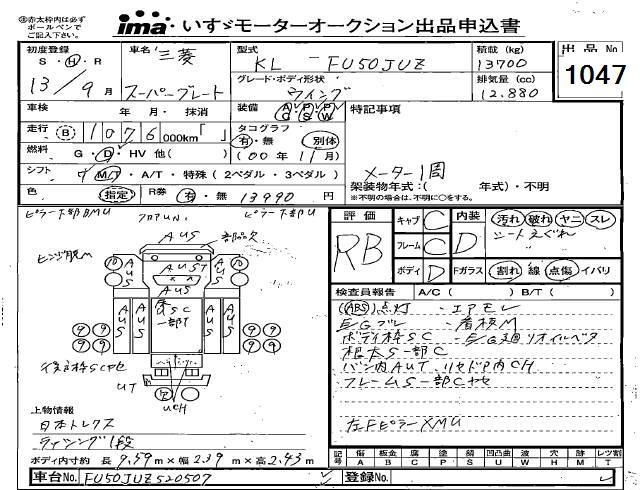 赤太枠内は必ず
ボールペンで
ご記入下さい。
ima・いすゞモーターオークション出品申込書
初度登録
S・H・R
13/9月
車名
三菱
スーパーグレート
型式
KL-FU50JUZ
積載 (kg)
13700
グレード・ボディ形状
ウイング
排気量 (cc)
12.880
出品No
1047
車検
年 月・抹消
装備
A C P S P W
走行
B 1076 000km「 」
タコグラフ
有・無 別体
(00年11月)
燃料
G・D・HV 他( )
シフト
7 M/T・A/T・特殊 (2ペダル・3ペダル)
色
指定
R券
有・無
13990 円
特記事項
メーター1周
架装物年式:( 年式)・不明
※不明の場合は、不明に○をする。
ピラー下部BMU
フロアUN.
ピラー下部U
AUS
AUST
AUS
AUS
AUS
一部T
UT
UCH
評価
RB
キャブ
C
フレーム
C
ボディ
D
内装
D
汚れ・破れ・ヤニ・スレ
シートえぐれ
Fガラス
割れ 線 点傷 イバリ
検査員報告
A/C ( ) B/T ( )
(ABS)点灯・エアモレ
E/Gブレ
ボディ枠SC
根本S一部C
バン内AUT
フレームS一部Cサビ
左FピラーXMU
上物情報
日本トレクス
ラッシング1段
ボディ内寸約 長 9.59m×幅 2.39m×高 2.43m
記号
傷 A
板金 B
腐 C
塗 P
錆 S
凹凸曲 U
波 W
穴 H
跡 M
レツ割 T
車台No.
FU50JUZ520507
登録No.